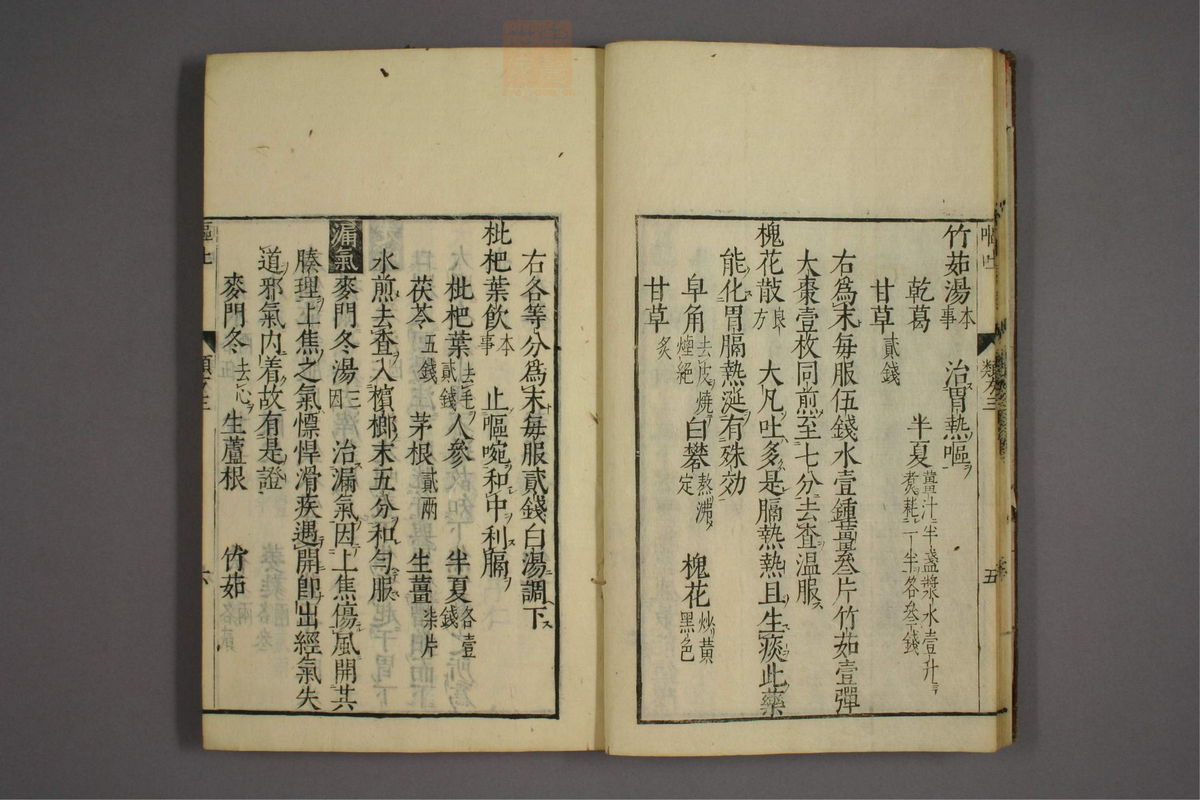 竹茹湯本事　治胃熱嘔
乾葛　半夏薑汁半盞漿水壹升煮耗一半各叄錢
甘草貳錢
右爲末每服伍錢水壹鍾薑叄片竹茹壹彈
大棗壹枚同煎至七分去査温服
槐花散良方　大凡吐多是膈熱熱且生痰此藥
能化胃膈熱涎有殊効
皁角去皮燒煙絕　白礬熬沸定　槐花炒黃黑色
甘草炙
類方三
五
右各等分爲末每服貳錢白湯調下
枇杷葉飲本事　止嘔啘和中利膈
枇杷葉去毛貳錢　人參　半夏各壹錢
茯苓五錢　茅根貳兩　生薑柒片
水煎去査入檳榔末五分和勻服
漏氣　麥門冬湯三因　治漏氣因上焦傷風開其
腠理上焦之氣慓悍滑疾遇開卽出經氣失
道邪氣內着故有是證
麥門冬去心　生蘆根　竹茹
六